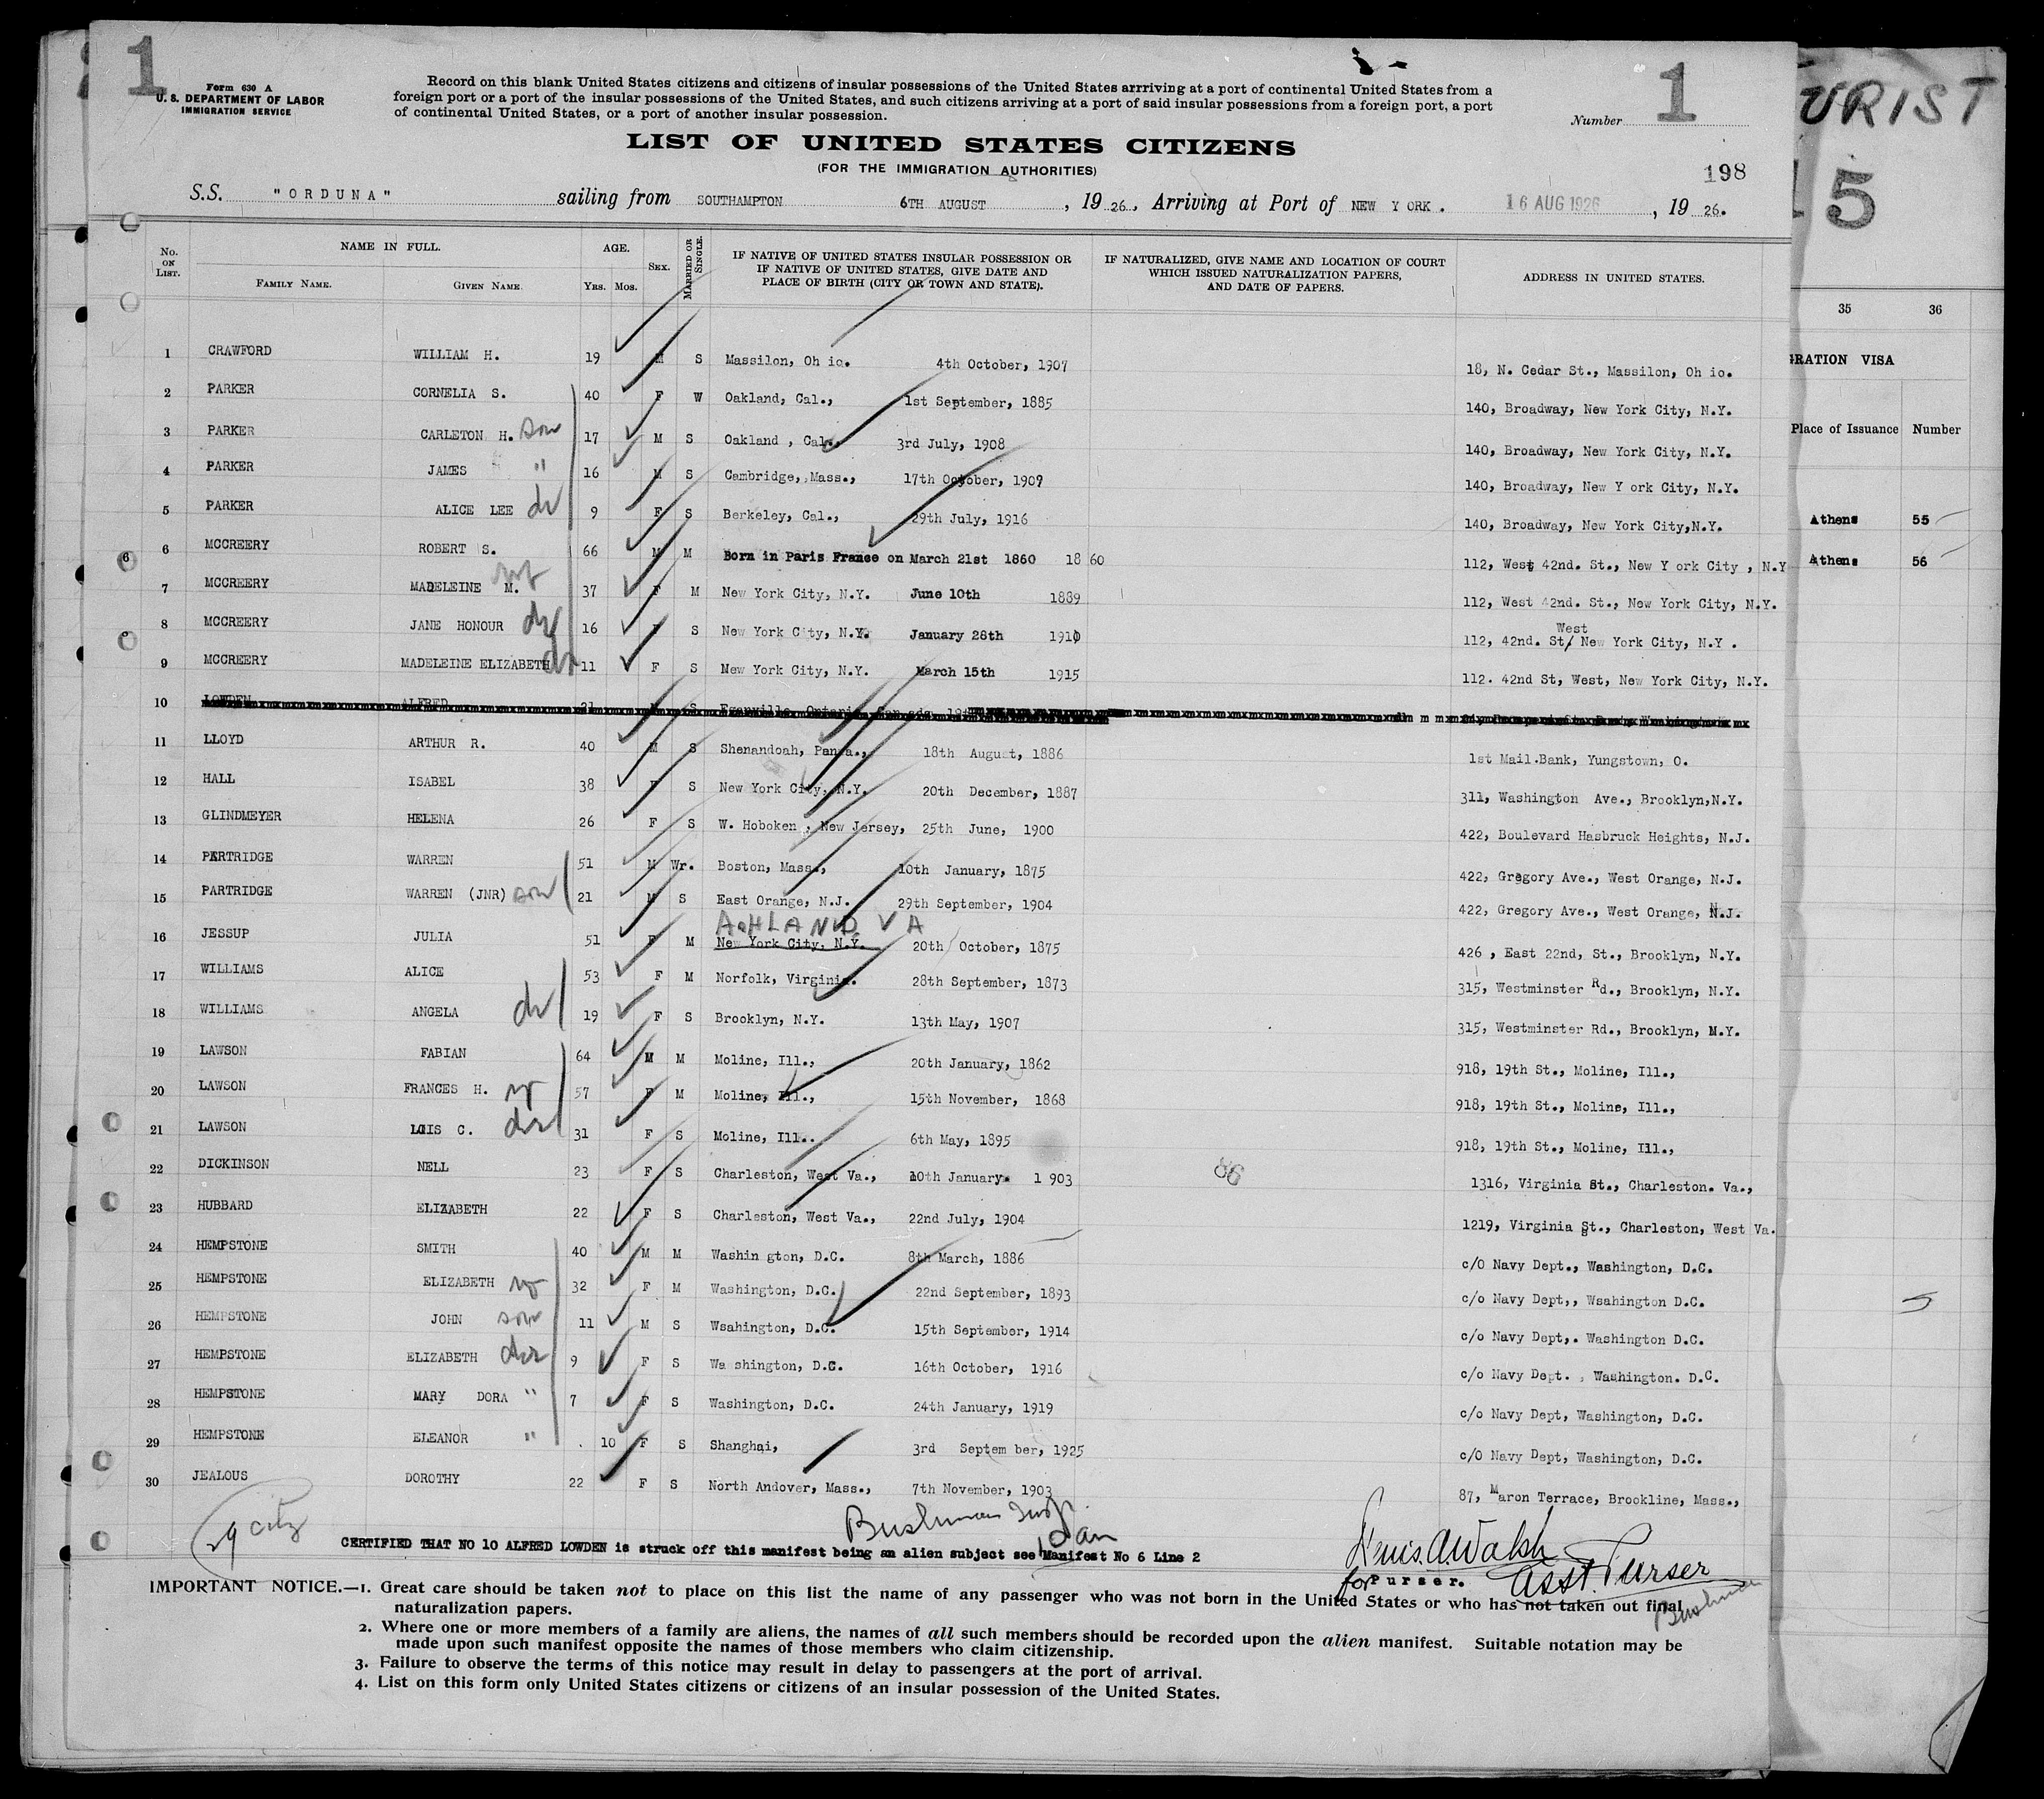 1
Form 630 A
U. S. DEPARTMENT OF LABOR
IMMIGRATION SERVICE
Record on this blank United States citizens and citizens of insular possessions of the United States arrriving at a port of continental United States from a
foreign port or a port of the insular possessions of the United States, and such citizens arriving at a port of said insular possessions from a foreign port, a port
of continental United States, or a port of another insular possession.
Number 1
LIST OF UNITED STATES CITIZENS
(FOR THE IMMIGRATION AUTHORITIES)
198
S.S. "ORDUNA" sailing from SOUTHAMPTON 6TH AUGUST , 19 26. , Arriving at Port of NEW Y ORK. 16 AUG 1926 , 19 26.
No. ON LIST. NAME IN FULL. AGE. SEX. MARRIED OR SINGLE. IF NATIVE OF UNITED STATES INSULAR POSSESSION OR IF NATIVE OF UNITED STATES, GIVE DATE AND PLACE OF BIRTH (CITY OR TOWN AND STATE). IF NATURALIZED, GIVE NAME AND LOCATION OF COURT WHICH ISSUED NATURALIZATION PAPERS, AND DATE OF PAPERS. ADDRESS IN UNITED STATES.
FAMILY NAME. GIVEN NAME. YRS. MOS.
1 CRAWFORD WILLIAM H. 19 M S Massilon, Oh io. 4th October, 1907 18, N. Cedar St., Massilon, Oh io.
2 PARKER CORNELIA S. 40 F W Oakland, Cal., 1st September, 1885 140, Broadway, New York City, N.Y.
3 PARKER CARLETON H. son 17 M S Oakland , Cal., 3rd July, 1908 140, Broadway, New York City, N.Y.
4 PARKER JAMES " 16 M S Cambridge, Mass., 17th October, 1909 140, Broadway, New Y ork City, N.Y.
5 PARKER ALICE LEE dr 9 F S Berkeley, Cal., 29th July, 1916 140, Broadway, New York City,N.Y.
6 MCCREERY ROBERT S. 66 M M Born in Paris France on March 21st 1860 18 60 112, West 42nd. St., New Y ork City , N.Y
7 MCCREERY MADELEINE M. 37 F M New York City, N.Y. June 10th 1889 112, West 42nd. St., New York City, N.Y.
8 MCCREERY JANE HONOUR dr 16 F S New York City, N.Y. January 28th 1910 112, 42nd. St/ West New York City, N.Y .
9 MCCREERY MADELEINE ELIZABETH dr 11 F S New York City, N.Y. March 15th 1915 112. 42nd St, West, New York City, N.Y.
10 LOWDEN ALFRED 21 M S Eganville, Ontario, Canada
11 LLOYD ARTHUR R. 40 M S Shenandoah, Penna., 18th August, 1886 1st Mail.Bank, Yungstown, O.
12 HALL ISABEL 38 F S New York City, N.Y. 20th December, 1887 311, Washington Ave., Brooklyn,N.Y.
13 GLINDMEYER HELENA 26 F S W. Hoboken , New Jersey, 25th June, 1900 422, Boulevard Hasbruck Heights, N.J.
14 PARTRIDGE WARREN 51 M Wr. Boston, Mass., 10th January, 1875 422, Gregory Ave., West Orange, N.J.
15 PARTRIDGE WARREN (JNR) son 21 M S East Orange, N.J. 29th September, 1904 422, Gregory Ave., West Orange, N.J.
ASHLAND VA
16 JESSUP JULIA 51 F M New York City, N.Y. 20th October, 1875 426 , East 22nd, St., Brooklyn, N.Y.
17 WILLIAMS ALICE 53 F M Norfolk, Virginia. 28th September, 1873 315, Westminster Rd., Brooklyn, N.Y.
18 WILLIAMS ANGELA dr 19 F S Brooklyn, N.Y. 13th May, 1907 315, Westminster Rd., Brooklyn, N.Y.
19 LAWSON FABIAN 64 M M Moline, Ill., 20th January, 1862 918, 19th St., Moline, Ill.,
20 LAWSON FRANCES H. 57 F M Moline, Ill., 15th November, 1868 918, 19th St., Moline, Ill.,
21 LAWSON LOIS C. dr 31 F S Moline, Ill.. 6th May, 1895 918, 19th St., Moline, Ill.,
22 DICKINSON NELL 23 F S Charleston, West Va., 10th January. 1 903 1316, Virginia St., Charleston. Va.,
23 HUBBARD ELIZABETH 22 F S Charleston, West Va., 22nd July, 1904 1219, Virginia St., Charleston, West Va.
24 HEMPSTONE SMITH 40 M M Washin gton, D.C. 8th March, 1886 c/O Navy Dept., Washington, D.C.
25 HEMPSTONE ELIZABETH 32 F M Washington, D.C. 22nd September, 1893 c/o Navy Dept,, Wsahington D.C.
26 HEMPSTONE JOHN son 11 M S Wsahington, D.C. 15th September, 1914 c/o Navy Dept,. Washington D.C.
27 HEMPSTONE ELIZABETH dr 9 F S Wa shington, D.C. 16th October, 1916 c/o Navy Dept. , Washington. D.C.
28 HEMPSTONE MARY DORA " 7 F S Washington, D.C. 24th January, 1919 c/o Navy Dept, Washington, D.C.
29 HEMPSTONE ELEANOR " . 10 F S Shanghai, 3rd Septem ber, 1925 c/O Navy Dept, Washington, D.C.
30 JEALOUS DOROTHY 22 F S North Andover, Mass., 7th November, 1903 87, Maron Terrace, Brookline, Mass.,
29 city
Bushman Insp.
CERTIFIED THAT NO 10 ALFRED LOWDEN is struck off this manifest being an alien subject see Manifest No 6 Line 2
for Purser. Asst. Purser
Bushman
IMPORTANT NOTICE.—1. Great care should be taken not to place on this list the name of any passenger who was not born in the United States or who has not taken out final
naturalization papers.
2. Where one or more members of a family are aliens, the names of all such members should be recorded upon the alien manifest. Suitable notation may be
made upon such manifest opposite the names of those members who claim citizenship.
3. Failure to observe the terms of this notice may result in delay to passengers at the port of arrival.
4. List on this form only United States citizens or citizens of an insular possession of the United States.
URIST
5
35 36
GRATION VISA
Place of Issuance Number
Athens 55
Athens 56